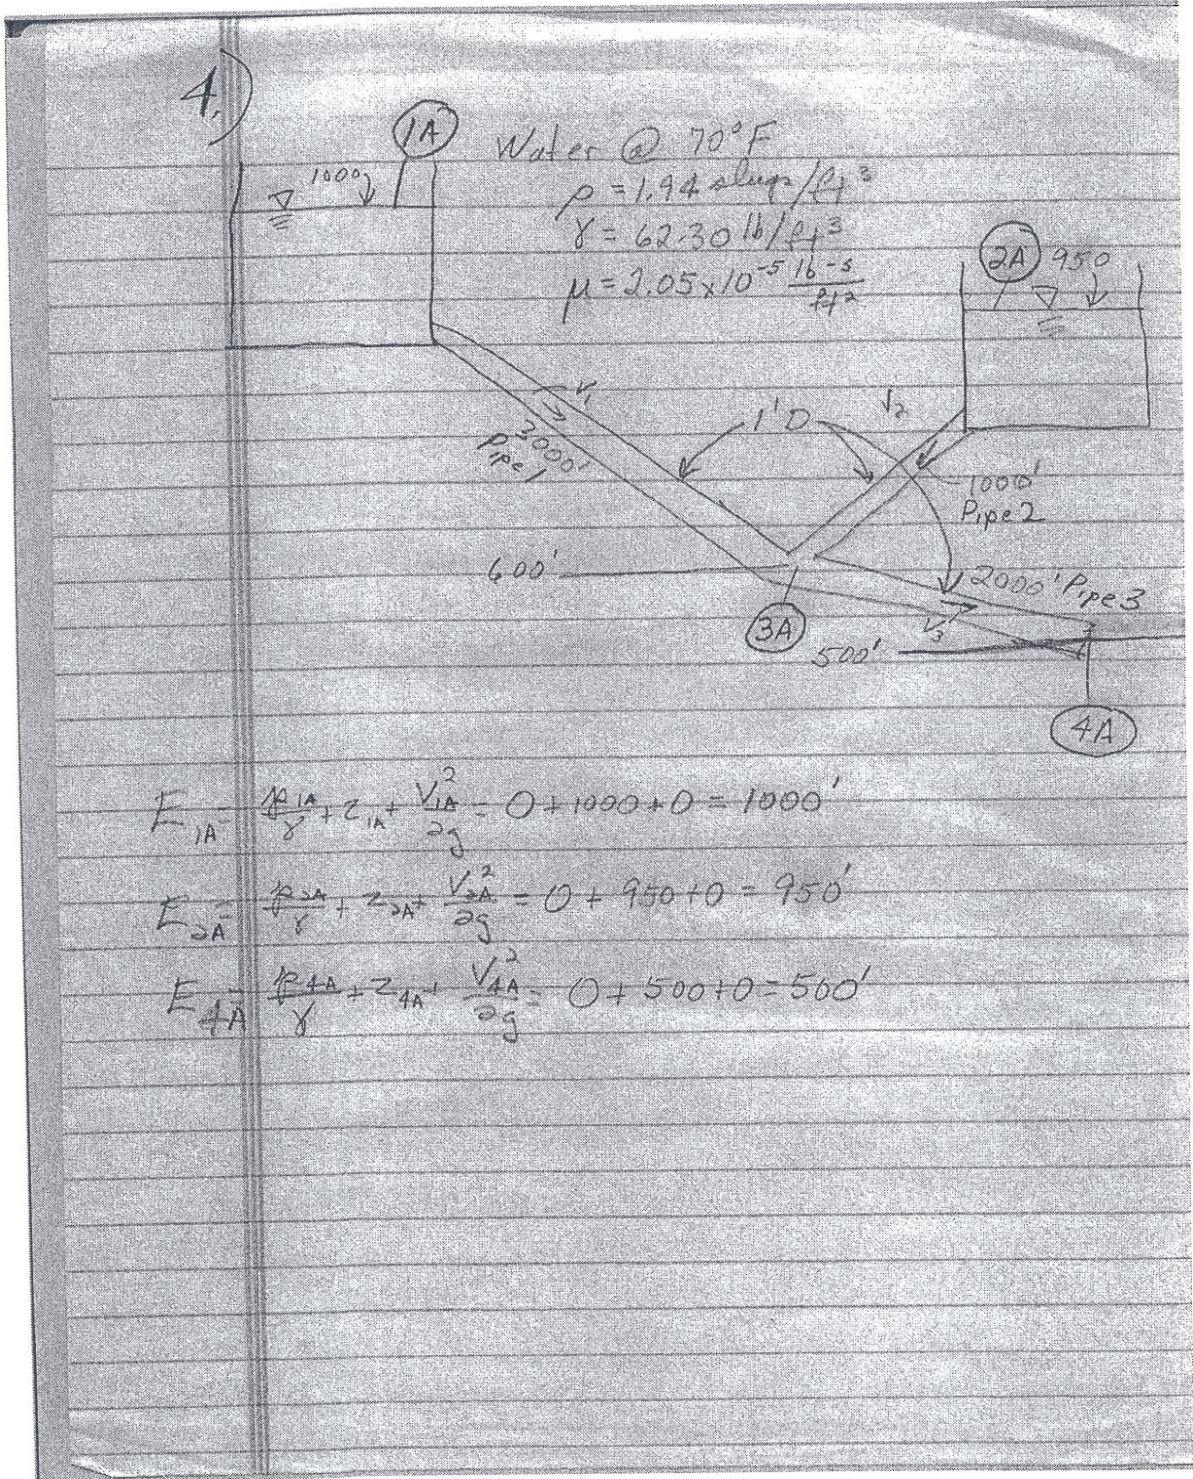 4.)
1A
Water @ 70°F
1000
ρ = 1.94 slugs/ft³
γ = 62.30 lb/ft³
2A 950
μ = 2.05x10⁻⁵ lb-s/ft²
V₁
1'D
V₂
3000'
Pipe 1
1000'
Pipe 2
600'
2000' Pipe 3
3A
V₃
500'
4A
E_1A = p_1A/γ + z_1A + V_1A²/2g = 0 + 1000 + 0 = 1000'
E_2A = p_2A/γ + z_2A + V_2A²/2g = 0 + 950 + 0 = 950'
E_4A = p_4A/γ + z_4A + V_4A²/2g = 0 + 500 + 0 = 500'